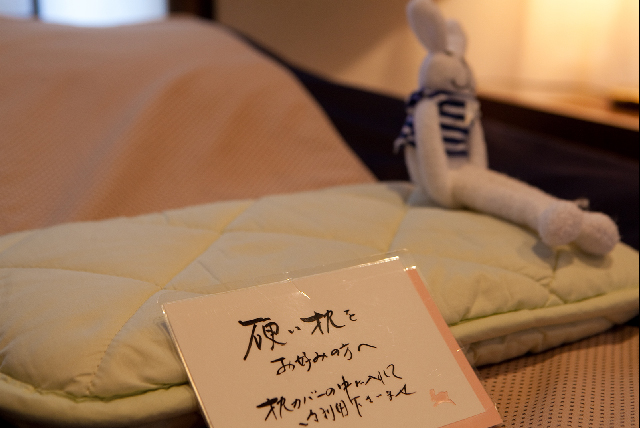 硬い枕を
お好みの方へ
枕カバーの中に入れて
ご利用下さいませ